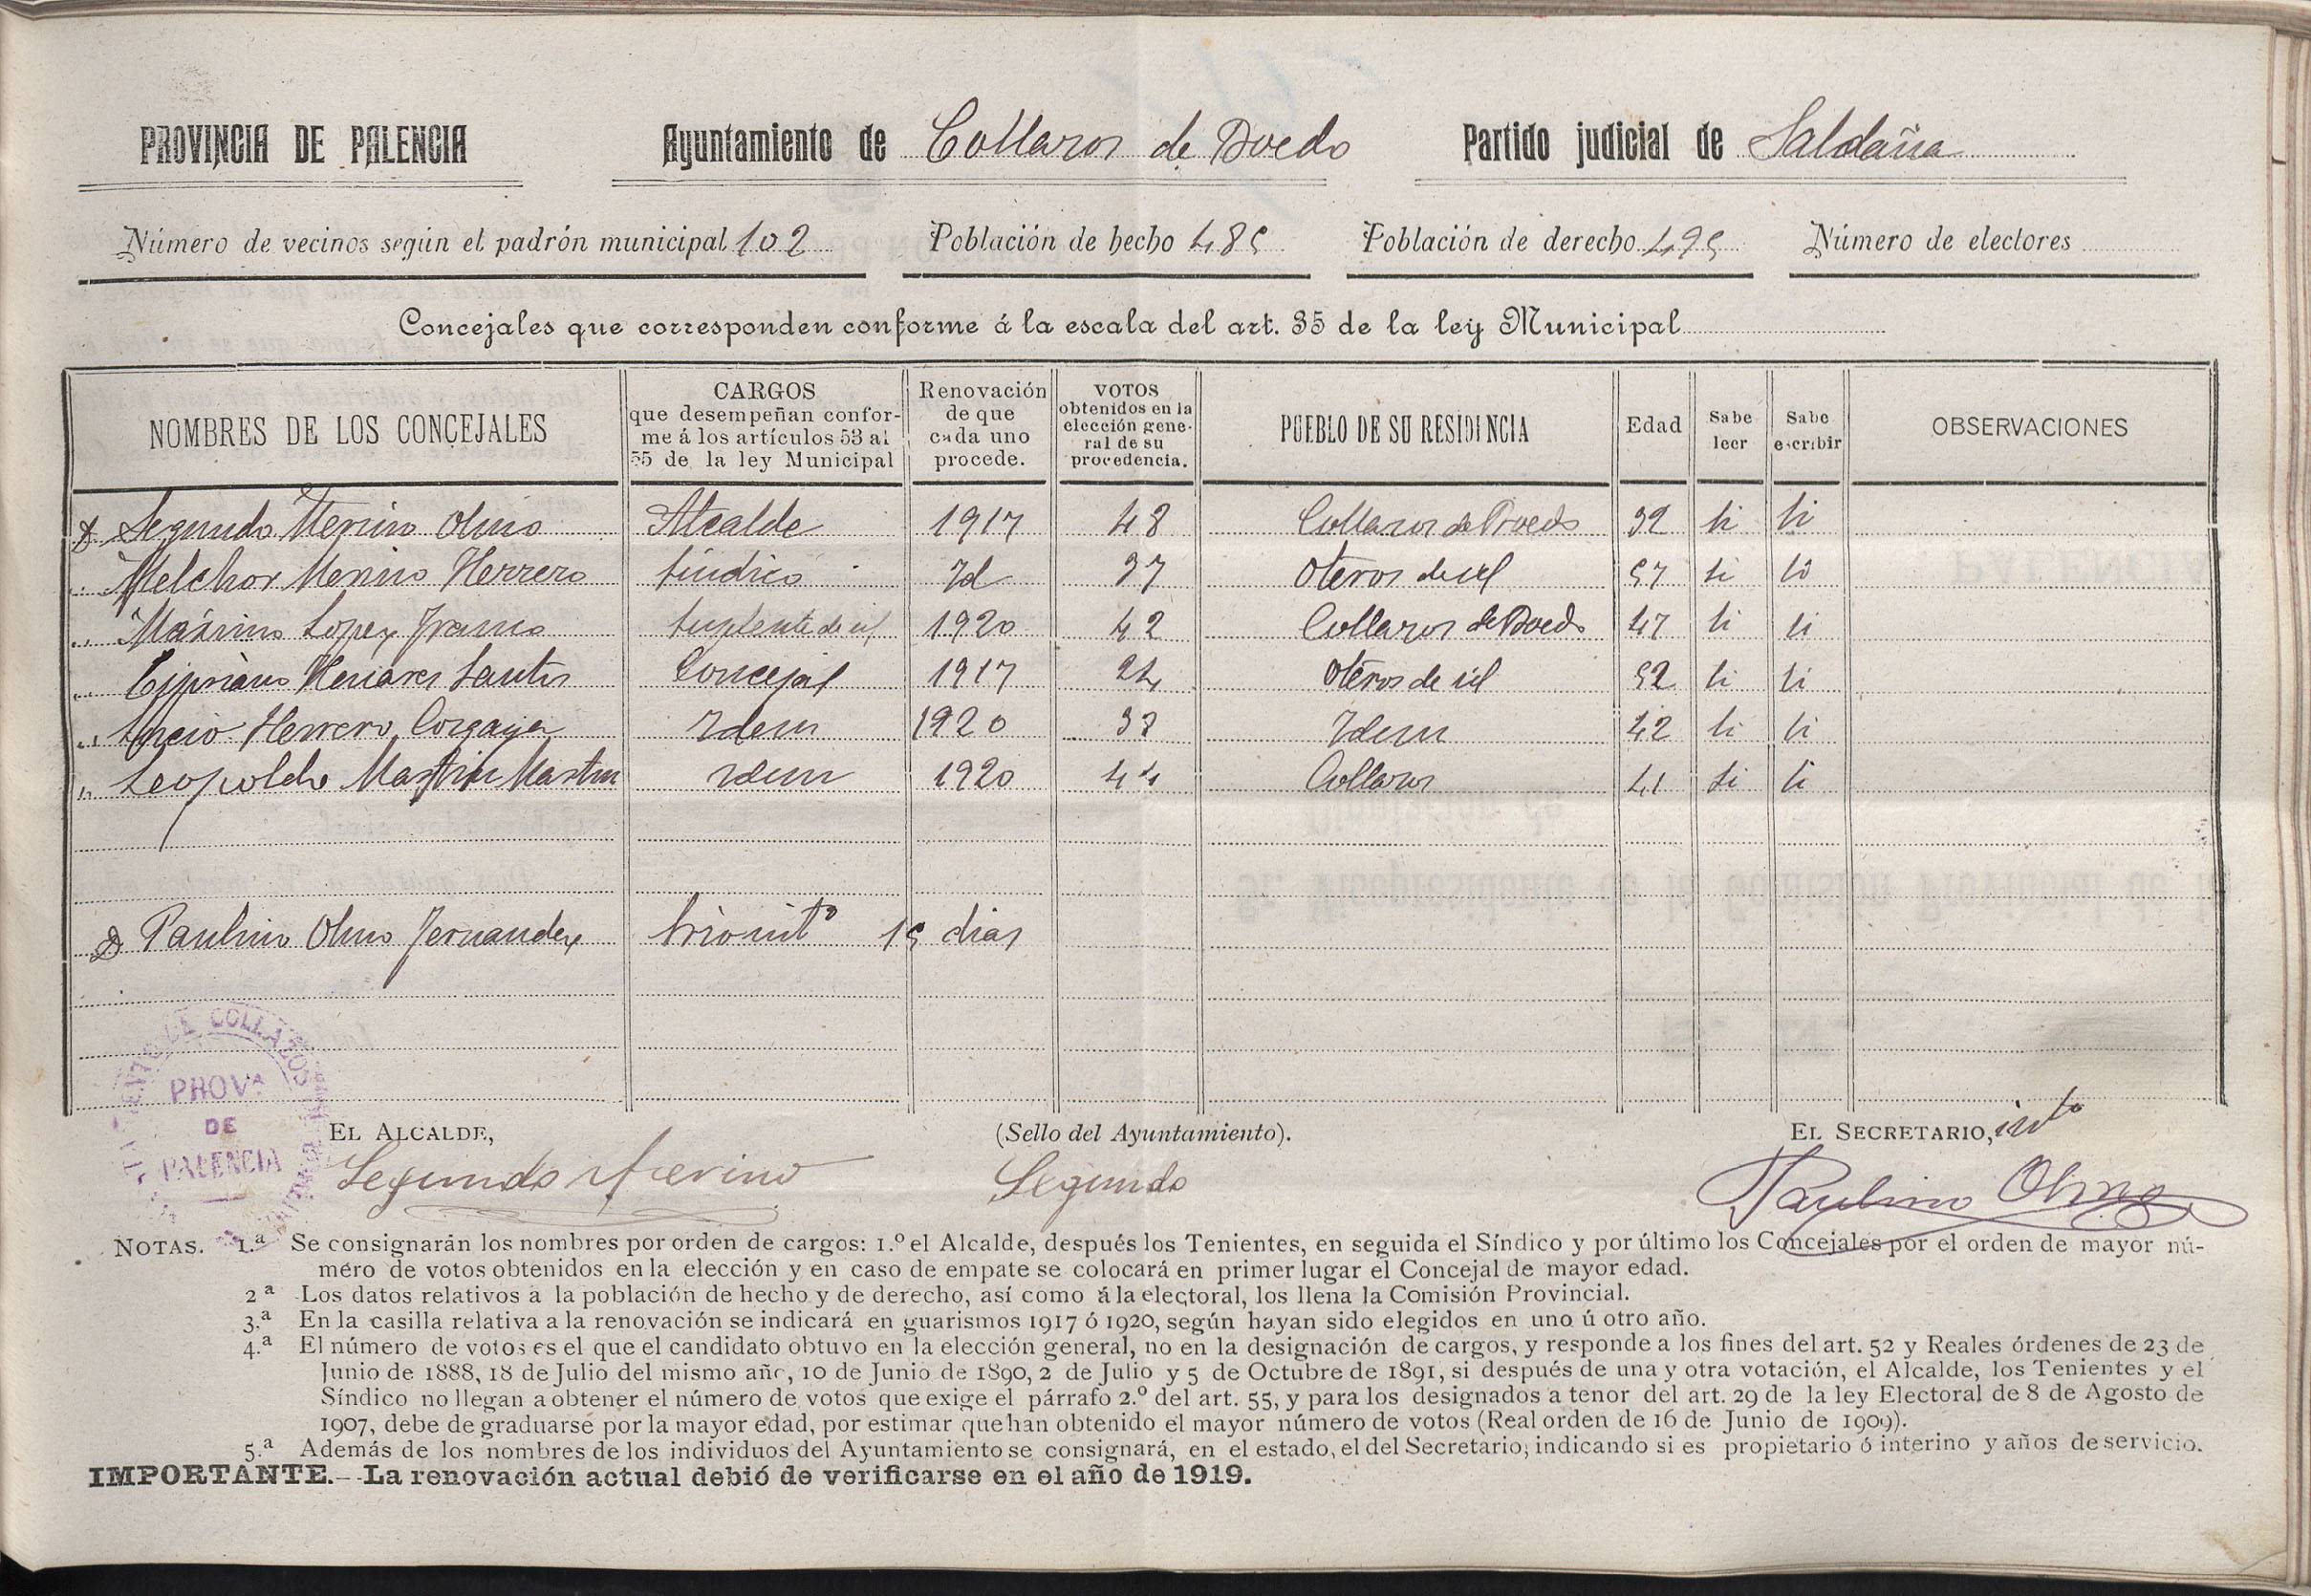 PROVINCIA DE PALENCIA Ayuntamiento de Collazos de Boedo Partido judicial de Saldaña
Número de vecinos según el padrón municipal 102 Población de hecho 485 Población de derecho 495 Número de electores
Concejales que corresponden conforme á la escala del art. 35 de la ley Municipal
NOMBRES DE LOS CONCEJALES
CARGOS
que desempeñan confor-
me á los artículos 53 al
55 de la ley Municipal
Renovación
de que
cada uno
procede.
VOTOS
obtenidos en la
elección gene-
ral de su
procedencia.
PUEBLO DE SU RESIDENCIA
Edad
Sabe
leer
Sabe
escribir
OBSERVACIONES
D Segundo Merino Olmo Alcalde 1917 48 Collazos de Boedo 32 si si
" Melchor Merino Herrero Síndico Id 37 Oteros de id 57 si si
" Maximo Lopez Franco Suplente de id 1920 42 Collazos de Boedo 47 si si
" Cipriano Henares Santos Concejal 1917 24 Oteros de id 52 si si
" Herrero Idem 1920 Idem 42 si si
" Leopoldo Martin Martin Idem 1920 44 Collazos 41 si si
D Paulino Olmo Fernandez 15 dias
COLLAZOS
PROV.ª
DE
PALENCIA
EL ALCALDE, (Sello del Ayuntamiento). EL SECRETARIO, intº
Segundo Merino Segundo Paulino Olmo
NOTAS. 1.ª Se consignarán los nombres por orden de cargos: 1.º el Alcalde, después los Tenientes, en seguida el Síndico y por último los Concejales por el orden de mayor nú-
mero de votos obtenidos en la elección y en caso de empate se colocará en primer lugar el Concejal de mayor edad.
2ª Los datos relativos a la población de hecho y de derecho, así como á la electoral, los llena la Comisión Provincial.
3.ª En la casilla relativa a la renovación se indicará en guarismos 1917 ó 1920, según hayan sido elegidos en uno ú otro año.
4.ª El número de votos es el que el candidato obtuvo en la elección general, no en la designación de cargos, y responde a los fines del art. 52 y Reales órdenes de 23 de
Junio de 1888, 18 de Julio del mismo año, 10 de Junio de 1890, 2 de Julio y 5 de Octubre de 1891, si después de una y otra votación, el Alcalde, los Tenientes y el
Síndico no llegan a obtener el número de votos que exige el párrafo 2.º del art. 55, y para los designados a tenor del art. 29 de la ley Electoral de 8 de Agosto de
1907, debe de graduarse por la mayor edad, por estimar que han obtenido el mayor número de votos (Real orden de 16 de Junio de 1909).
5.ª Además de los nombres de los individuos del Ayuntamiento se consignará, en el estado, el del Secretario, indicando si es propietario ó interino y años de servicio.
IMPORTANTE.—La renovación actual debió de verificarse en el año de 1919.